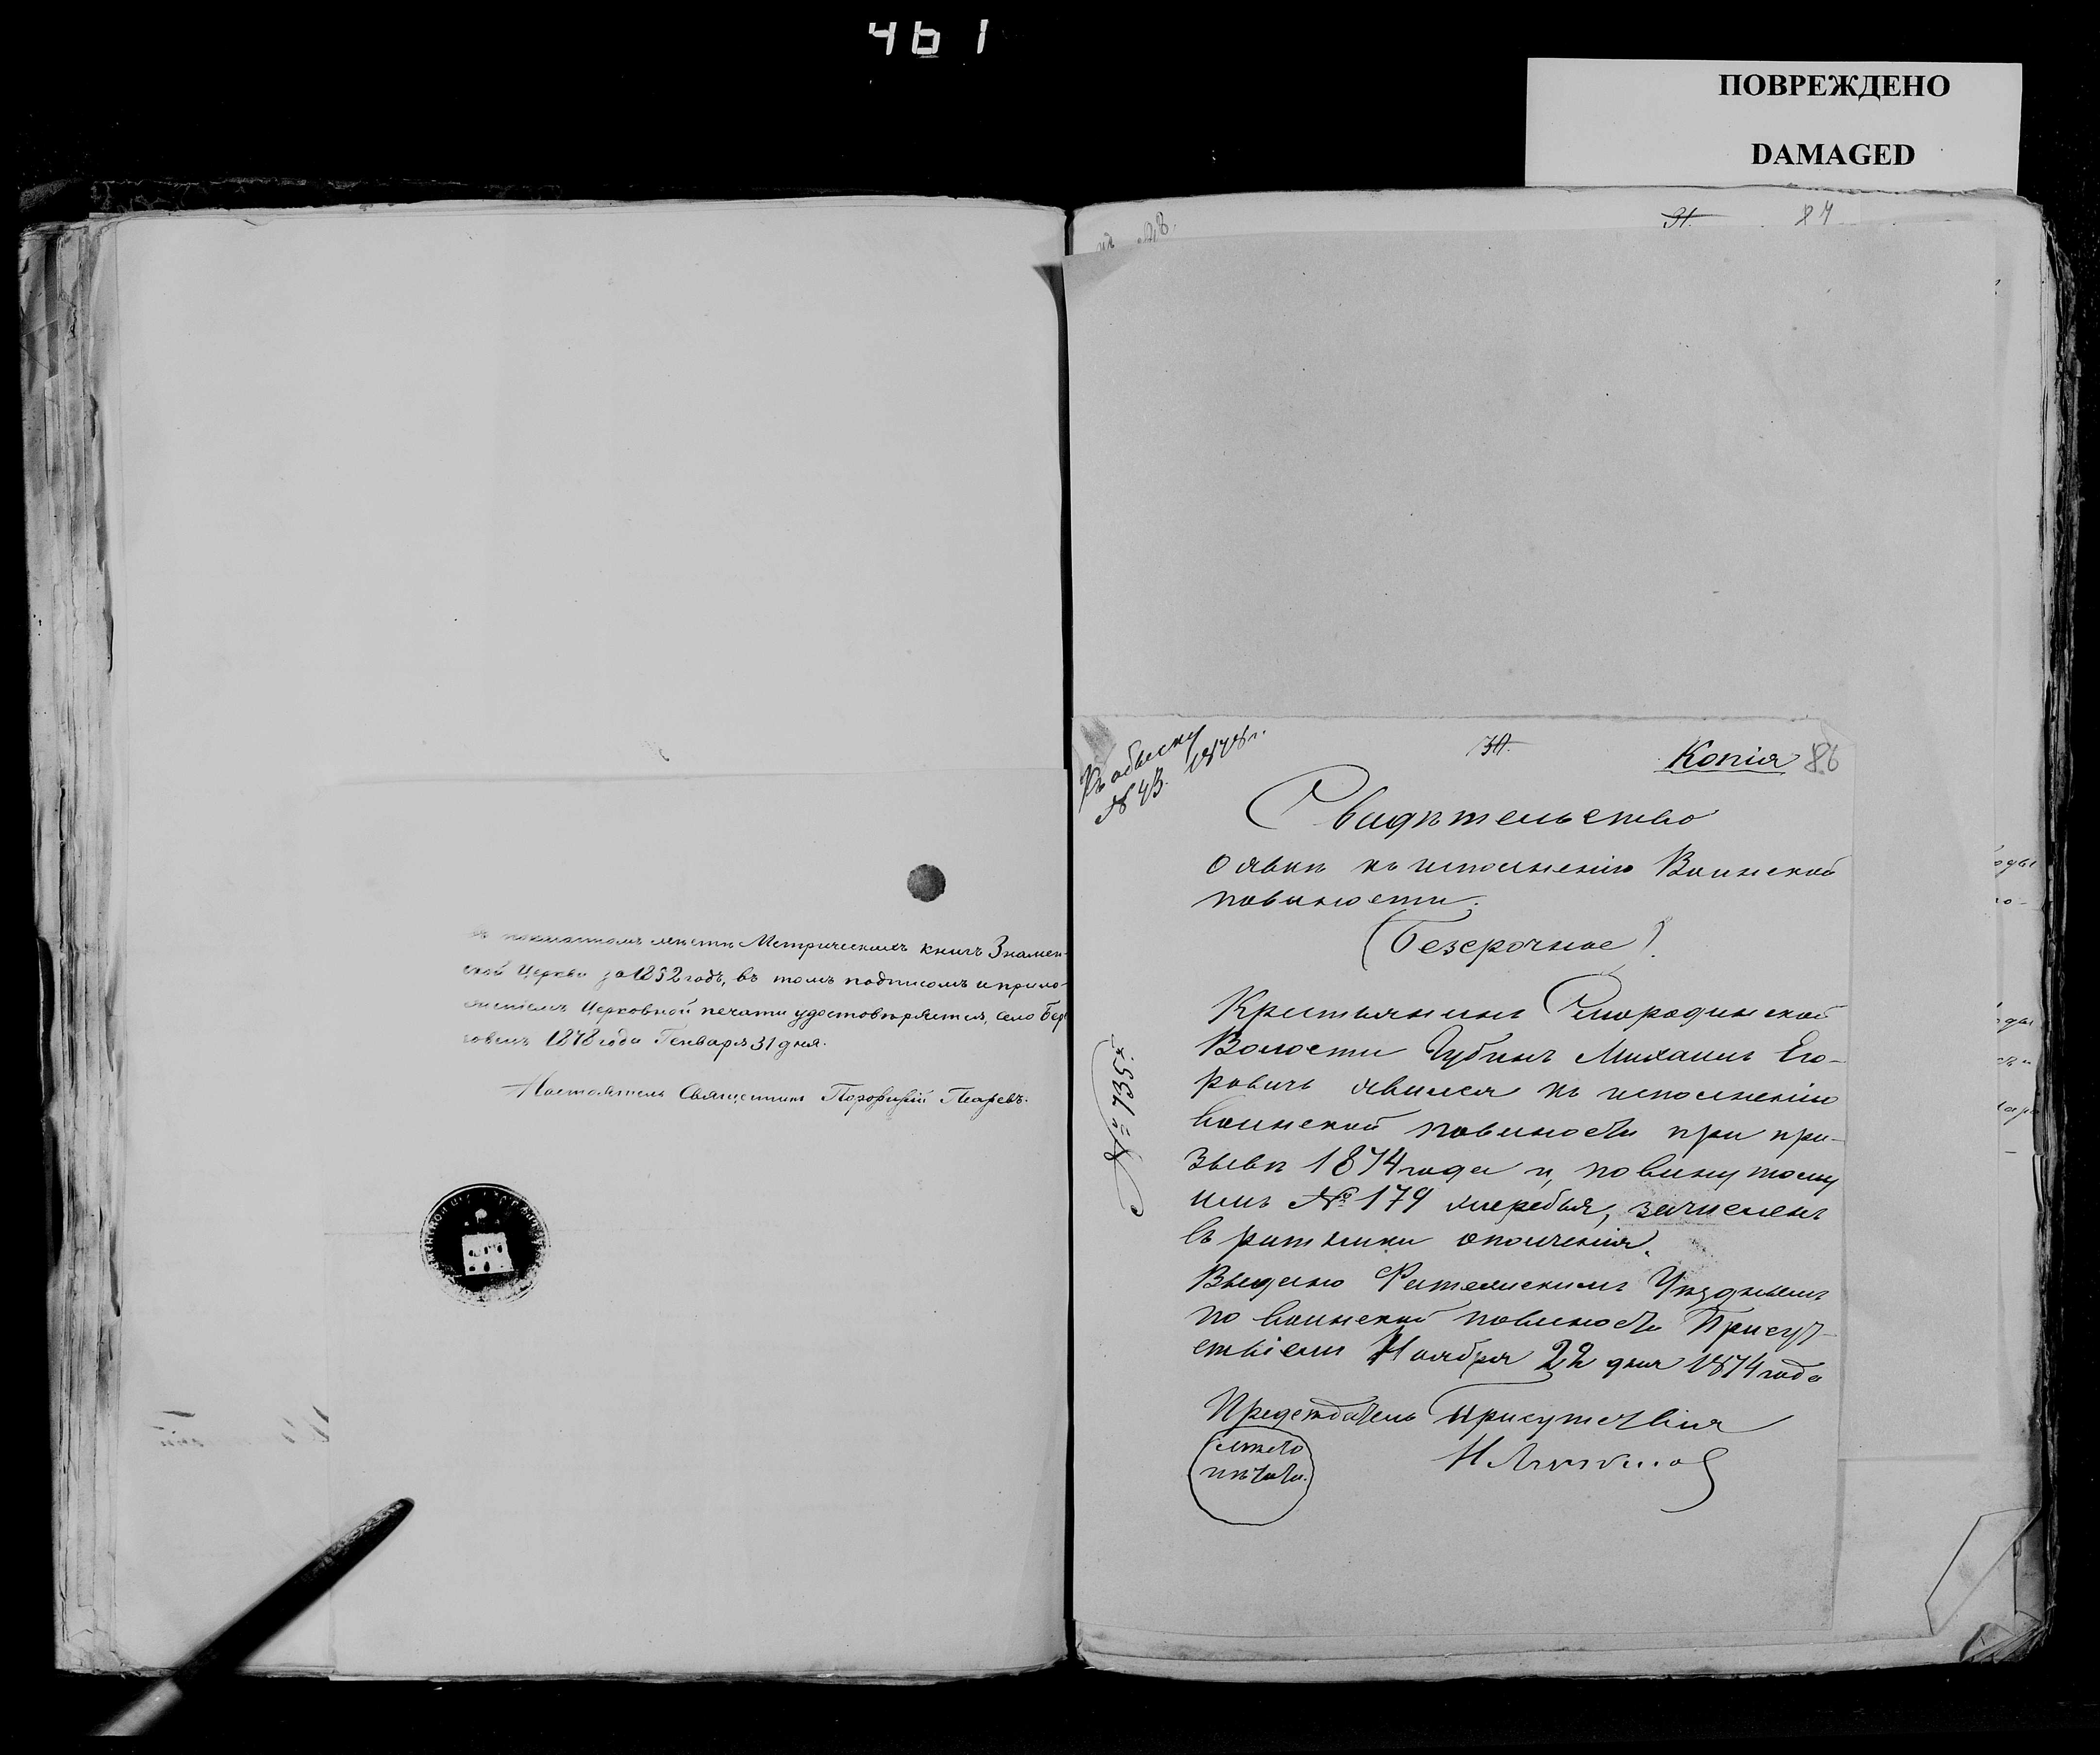 461
ПОВРЕЖДЕНО
DAMAGED
31. 84
Метрическихъ книгъ Знамен-
ской Церкви за 1852 годъ, въ томъ подписомъ и прило-
женіемъ Церковной печати удостовѣряется, село
1878 года Генваря 31 дня.
Настоятель Священникъ Порофирій
Къ обыску
№ 43. 1878 г.
30. Копія 86
Свидѣтельство
о явкѣ къ исполненію Воинской
повиности.
(Безсрочное)
№ 735.
Крестьянинъ
Волости Губинъ Михаилъ Его-
ровичъ явился къ исполненію
воинской повиности при при-
зывѣ 1874 года и, по вынутому
имъ № 179 жеребья, зачисленъ
въ ратники ополченія.
Выдано Фатежскимъ Уѣзднымъ
по воинской повиности Присут-
ствіемъ Ноября 22 дня 1874 года
Предсѣдатель Присутствія
мѣсто
печати.